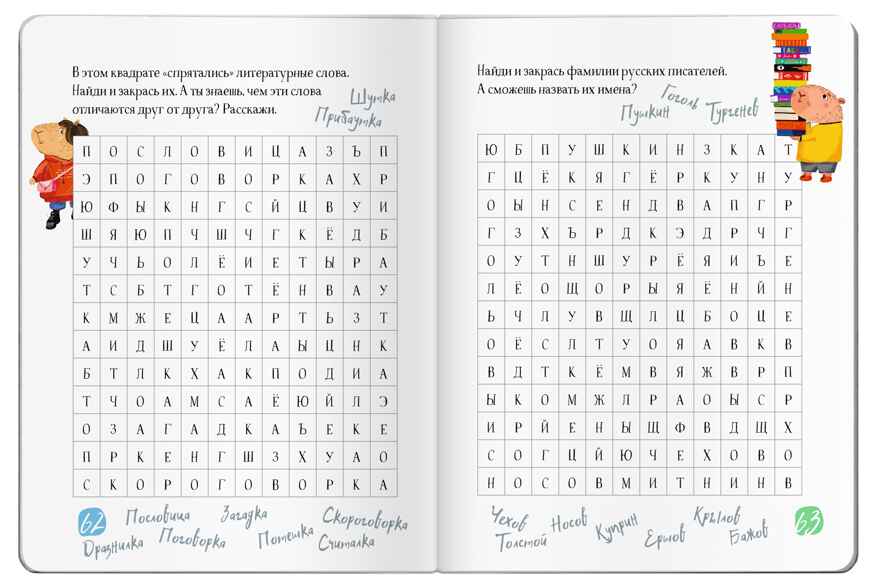 В этом квадрате «спрятались» литературные слова.
Найди и закрась их. А ты знаешь, чем эти слова
отличаются друг от друга? Расскажи.
Шутка
Прибаутка
П О С Л О В И Ц А З Ъ П
Э П О Г О В О Р К А Х Р
Ю Ф Ы К Н Г С Й Ц В У И
Ш Я Ю П Ч Ш Ч Г К Ё Д Б
У Ч Ь О Л Ё И Е Т Ы Р А
Т С Б Т Г О Т Ё Н В А У
К М Ж Е Ц А А Р Т Ь З Т
А И Д Ш У Ё Л А Ы Ц Н К
Б Т Л К Х А К П О Д И А
Т Ч О А М С А Ё Ю Й Л Э
О З А Г А Д К А Ъ Е К Е
П Р К Е Н Г Ш З Х У А О
С К О Р О Г О В О Р К А
62
Пословица
Загадка
Скороговорка
Дразнилка
Поговорка
Потешка
Считалка
Найди и закрась фамилии русских писателей.
А сможешь назвать их имена?
Гоголь
Пушкин
Тургенев
Ю Б П У Ш К И Н З К А Т
Г Ц Ё К Я Г Ё Р К У Н У
О Ы Н С Е Н Д В А П Г Р
Г З Х Ъ Р Д К Э Д Р Ч Г
О У Т Н Ш У Р Ё Я И Ъ Е
Л Ё О Щ О Р Ы Я Ё Н Й Н
Ь Ч Л У В Щ Л Ц Б О Ц Е
О Ё С Л Т У О Я А В К В
В Д Т К Ё М В Я Ж В Р П
Ы К О М Ж Л Р А О Ы С Р
И Р Й Е Н Ы Щ Ф В Д Щ Х
С О Г Ц Й Ю Ч Е Х О В О
Н О С О В М И Т Н И Н В
Чехов
Носов
Крылов
Толстой
Куприн
Ершов
Бажов
63